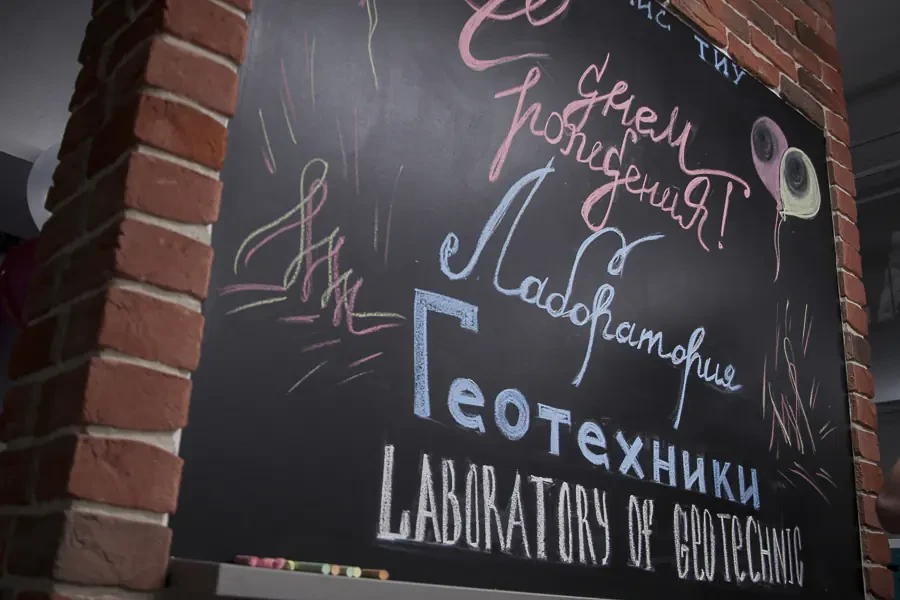 ТИУ
С
днем
рождения!
Лаборатория
Геотехники
LABORATORY OF GEOTECHNIC